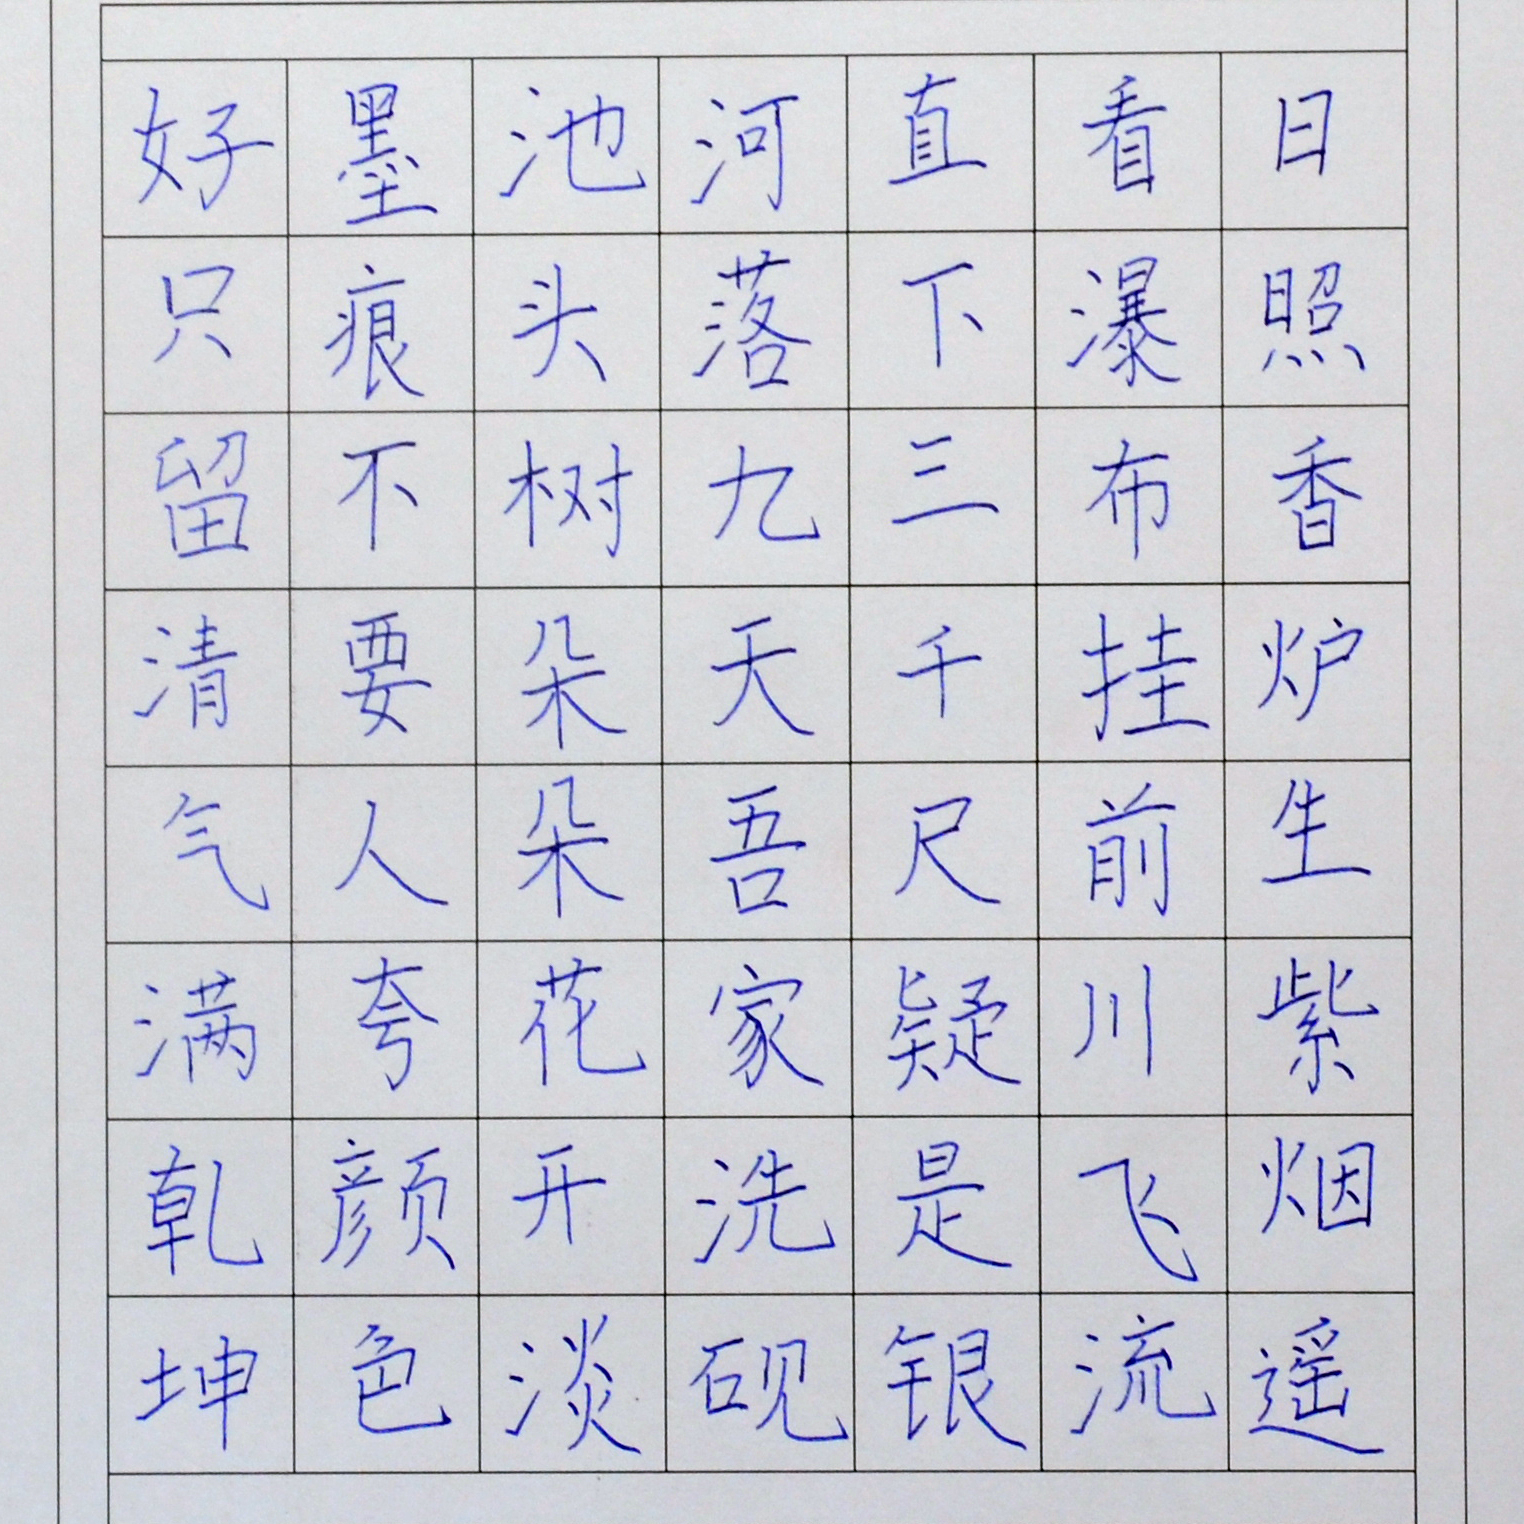 日照香炉生紫烟遥
看瀑布挂前川飞流
直下三千尺疑是银
河落九天吾家洗砚
池头树朵朵花开淡
墨痕不要人夸颜色
好只留清气满乾坤